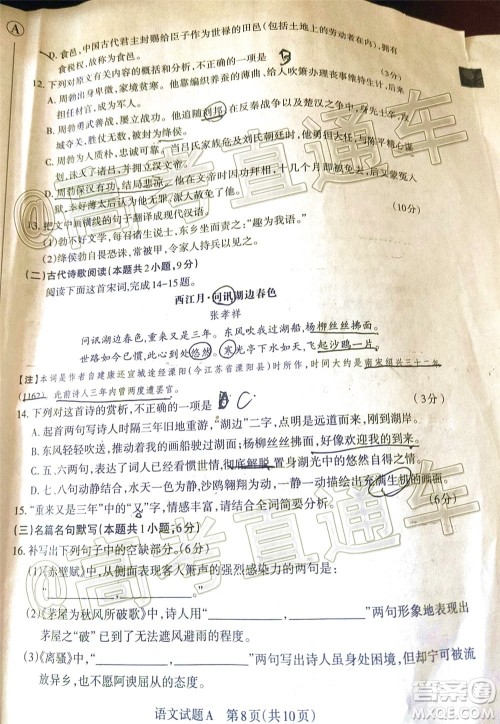 A
D. 食邑,中国古代君主封赐给臣子作为世禄的田邑(包括土地上的劳动者在内),拥有
食税权,故称为食邑。
12. 下列对原文有关内容的概括和分析,不正确的一项是 (3分)
A. 周勃出身卑微,家境贫寒。他靠编织养蚕的薄曲、给人吹箫办理丧事维持生计,后来
担任成为军人。
B. 周勃勇武善战,屡立战功。他追随刘邦,在反秦战争以及楚汉之争中,
城夺关、胜仗无数,被封为绛侯。
C. 周勃为人质朴,忠诚刚毅。当吕氏家族危及刘氏朝廷时,他与陈平精心谋
划,诛灭诸吕,并拥汉立文帝。
D. 周勃保汉有功,结局悲凉。他在文帝时因功拜相,十几个月后即被罢免,后又蒙冤入
狱,幸好薄太后认为他不会反,才得以赦免。
13. 把文中画横线的句子翻译成现代汉语。 (10分)
(1)勃不好文学,每召诸生说士,东乡坐而责之:“趣为我语。”
(2)绛侯勃自畏恐诛,常被甲,
(二)古代诗歌阅读(本题共2小题,9分)
阅读下面这首宋词,完成14-15题。
西江月·问讯湖边春色
张孝祥
问讯湖边春色,重来又是三年。东风吹我过湖船,杨柳丝丝拂面。
世路如今已惯,此心到处悠然。寒光亭下水如天,飞起沙鸥一片。
[注]本词是作者自建康还宣城途经溧阳(今江苏省溧阳县)时所作,时间大约是南宋绍兴三十二年
(1162)。此前诗人三年内曾两度遭罢官。
14. 下列对这首诗的赏析,不正确的一项是 B C (3分)
A. 起首两句写诗人时隔三年旧地重游,“湖边”二字,点明到湖岸。
B. 东风轻轻吹送,推动着我的画船驶过湖面;杨柳丝丝拂面,好像欢迎我的到来。
C. 五、六两句,表现了诗人看惯世情,彻底解脱,置身湖光中的悠然心情。
D. 七、八句动静结合,沙鸥翱翔为动,一静一动构成了充满生机的画面。
15. “重来又是三年”中的“又”字,情感丰富,请结合全词简要分析。 (6分)
(三)名篇名句默写(本题共1小题,6分)
16. 补写出下列句子中的空缺部分。(6分)
(1)《赤壁赋》中,从侧面表现客人箫声的强烈感染力的两句是:
“__________,__________。”
(2)《茅屋为秋风所破歌》中,诗人用“__________,__________”两句形象地表现出
茅屋之“破”已到了无法遮风避雨的态度。
(3)《离骚》中,“__________,__________”两句写出诗人虽身处困境,但却宁可被流
放异乡,也不愿阿谀屈从的态度。
语文试题A 第8页(共10页)
高考直通车
高考直通车
高考直通车
答案圈
MXQE.COM